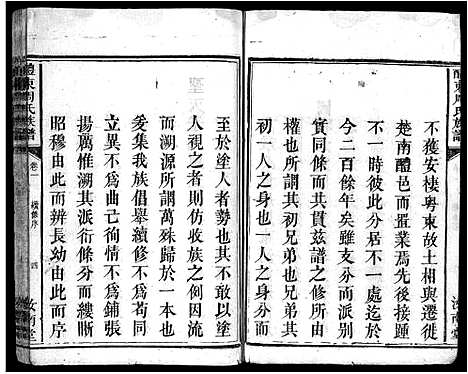 醴東周氏族譜
不獲安棲粵東故土相與遷徙
楚南醴邑而置業焉先後接踵
不一時彼此分居不一處迄於
今二百餘年矣雖支分派衍而
實同條而共貫茲譜之修所由
權也所謂其初兄弟也其
初一人之身也一人之身分而
汝南堂
至於塗人者勢也其不敢以塗
人視之者則仿收族之例因流
而溯源所謂萬殊歸於一本也
爰集我族倡舉續修不為苟同
立異不為曲己徇情不為鋪張
揚厲惟溯其派衍條分而縷晰
昭穆由此而辨長幼由此而序
醴東周氏族譜
卷一
續修序
四
汝南堂